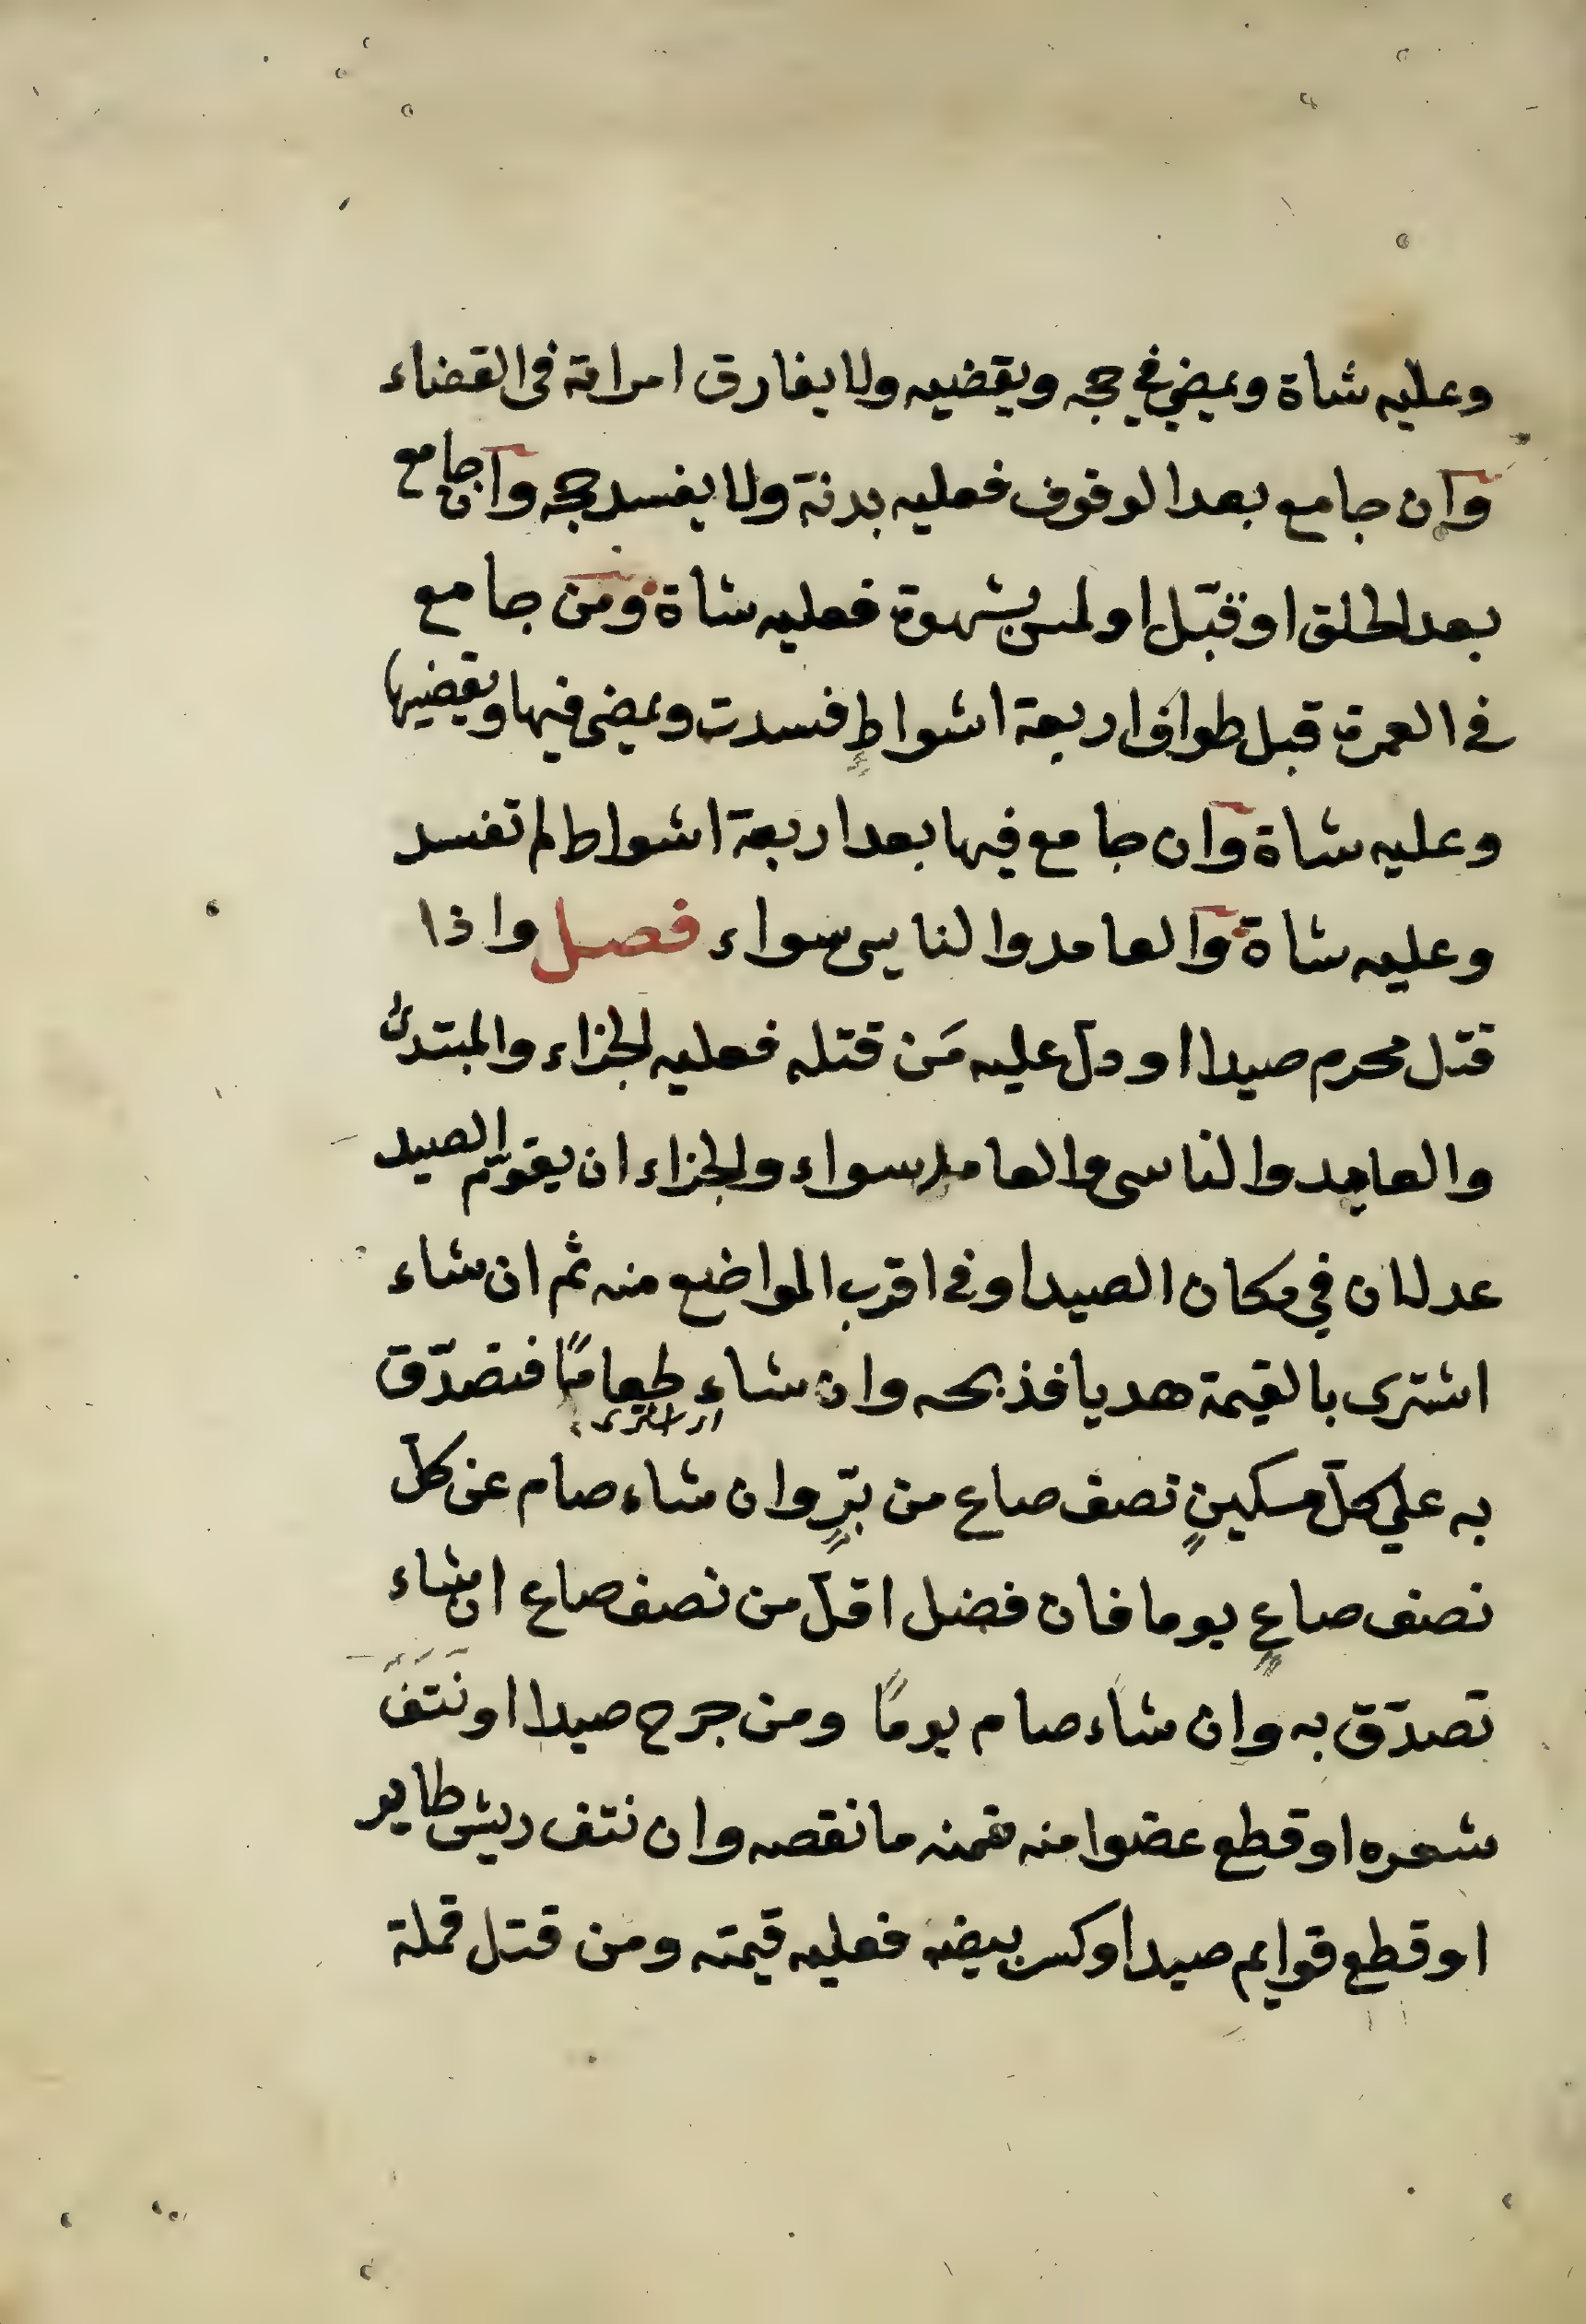 وعليه شاة ويمضي في حجه ويقضيه ولا يفارق امراته فى القضاء
وان جامع بعد الوقوف فعليه بدنة ولا يفسد حجه وان جامع
بعد الحلق او قبّل او لمس بشهوة فعليه شاة ومن جامع
فى العمرة قبل طواف اربعة اشواطٍ فسدت ويمضى فيها ويقضيها
وعليه شاة وان جامع فيها بعد اربعة اشواط لم تفسد
وعليه شاة والعامد والناسى سواء فصل واذا
قتل محرم صيدا او دلّ عليه مَن قتله فعليه الجزاء والمبتدئ
والعايد والناسى والعامد سواء والجزاء ان يقوّم الصيد
عدلان في مكان الصيد او فى اقرب المواضع منه ثم ان شاء
اشترى بالقيمة هديا فذبحه وان شاء طعامًا فتصدّق
اى اشترى
به على كلّ مسكينٍ نصف صاع من برٍّ وان شاء صام عن كلّ
نصف صاعٍ يوما فان فضل اقلّ من نصف صاع ان شاء
تصدّق به وان شاء صام يومًا ومن جرح صيدا او نَتَفَ
شعره او قطع عضوا منه ضمنه ما نقصه وان نتف ريش طاير
او قطع قوايم صيد او كسر بيضه فعليه قيمته ومن قتل قملة